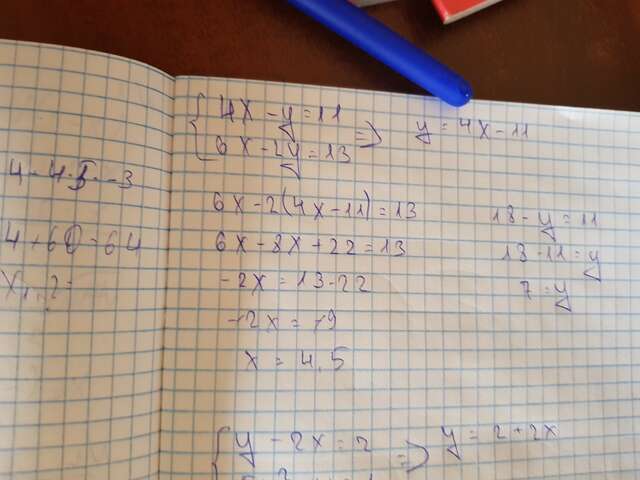 4 - 4·5·-3
4 + 60 = 64
X₁,₂ =
4x - y = 11
6x - 2y = 13 => y = 4x - 11
6x - 2(4x - 11) = 13
6x - 8x + 22 = 13
-2x = 13 - 22
-2x = -9
x = 4,5
18 - y = 11
18 - 11 = y
7 = y
y - 2x = 2 => y = 2 + 2x